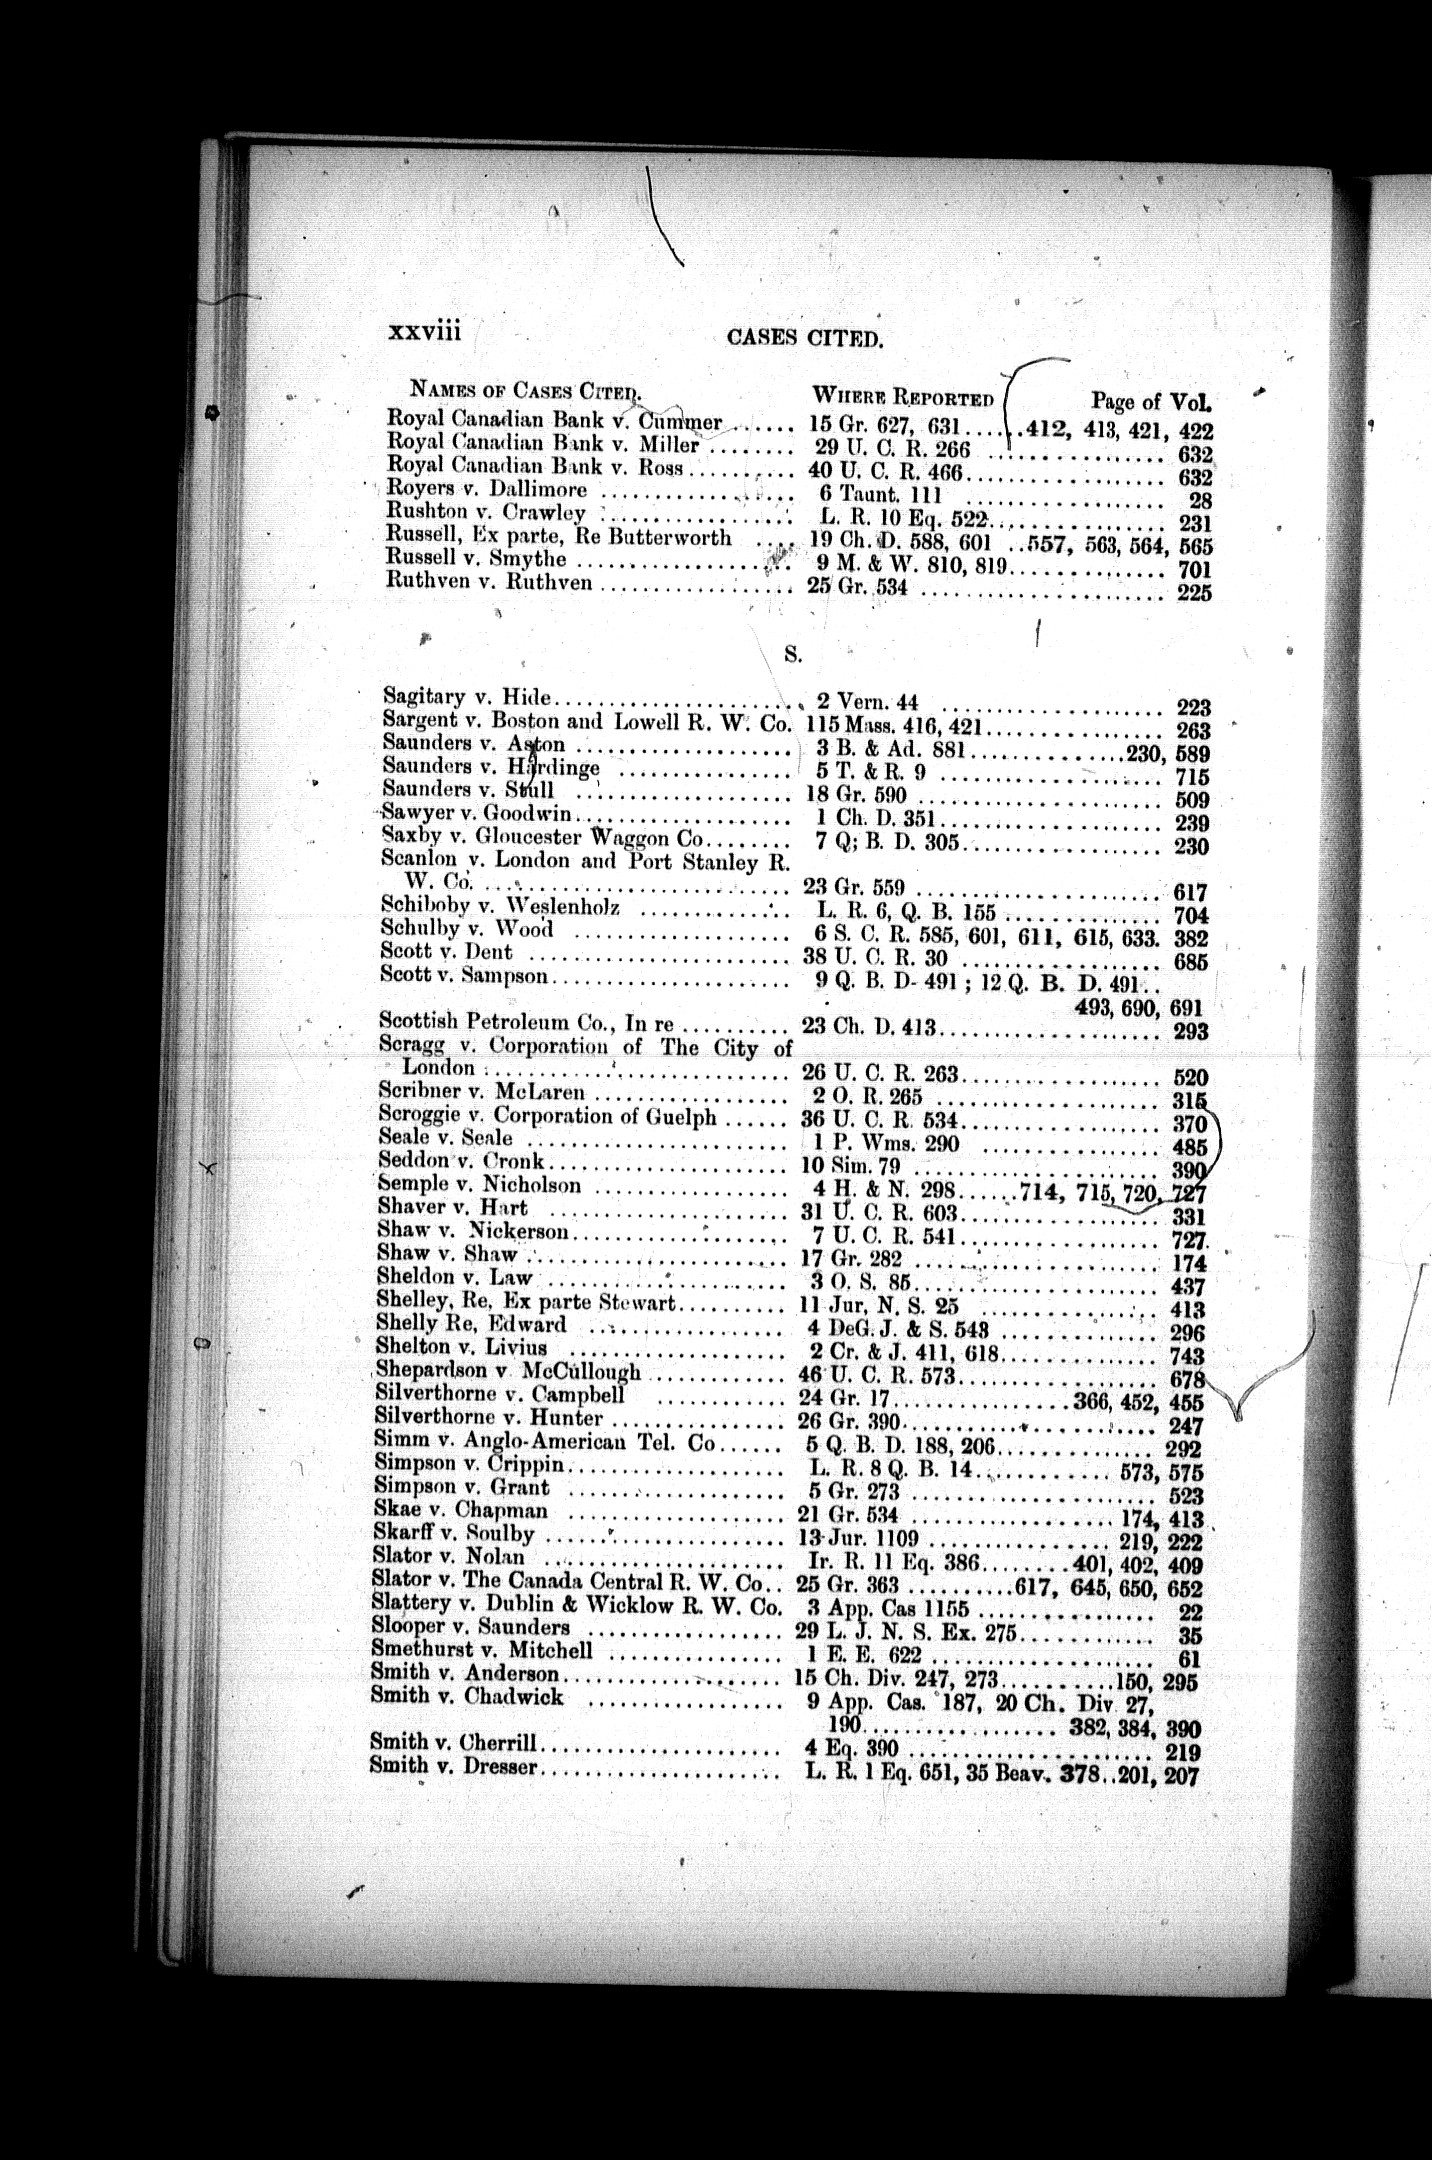 xxviii CASES CITED.
NAMES OF CASES CITED. WHERE REPORTED Page of Vol.
Royal Canadian Bank v. Cummer ...... 15 Gr. 627, 631......412, 413, 421, 422
Royal Canadian Bank v. Miller ........ 29 U. C. R. 266 ................ 632
Royal Canadian Bank v. Ross.......... 40 U. C. R. 466.................. 632
Royers v. Dallimore .................. 6 Taunt. 111 .................. 28
Rushton v. Crawley .................. L. R. 10 Eq. 522................ 231
Russell, Ex parte, Re Butterworth .... 19 Ch. D. 588, 601 ..557, 563, 564, 565
Russell v. Smythe .................... 9 M. & W. 810, 819.............. 701
Ruthven v. Ruthven .................. 25 Gr. 534 ...................... 225
S.
Sagitary v. Hide...................... 2 Vern. 44 .................... 223
Sargent v. Boston and Lowell R. W. Co. 115 Mass. 416, 421................ 263
Saunders v. Aston .................... 3 B. & Ad. 881..............230, 589
Saunders v. Hardinge ................ 5 T. & R. 9 .................... 715
Saunders v. Stull .................... 18 Gr. 590 ...................... 509
Sawyer v. Goodwin.................... 1 Ch. D. 351.................... 239
Saxby v. Gloucester Waggon Co........ 7 Q; B. D. 305.................. 230
Scanlon v. London and Port Stanley R.
W. Co. ............................ 23 Gr. 559 ...................... 617
Schiboby v. Weslenholz .............. L. R. 6, Q. B. 155 .............. 704
Schulby v. Wood .................... 6 S. C. R. 585, 601, 611, 615, 633. 382
Scott v. Dent ........................ 38 U. C. R. 30 .................. 685
Scott v. Sampson...................... 9 Q. B. D- 491 ; 12 Q. B. D. 491..
493, 690, 691
Scottish Petroleum Co., In re .......... 23 Ch. D. 413.................... 293
Scragg v. Corporation of The City of
London ............................ 26 U. C. R. 263.................. 520
Scribner v. McLaren .................. 2 O. R. 265 .................... 315
Scroggie v. Corporation of Guelph ...... 36 U. C. R. 534.................. 370
Seale v. Seale ........................ 1 P. Wms. 290 ................ 485
Seddon v. Cronk...................... 10 Sim. 79 ...................... 390
Semple v. Nicholson .................. 4 H. & N. 298......714, 715, 720, 727
Shaver v. Hart ...................... 31 U. C. R. 603.................. 331
Shaw v. Nickerson.................... 7 U. C. R. 541.................. 727
Shaw v. Shaw ........................ 17 Gr. 282 ...................... 174
Sheldon v. Law ...................... 3 O. S. 85...................... 437
Shelley, Re, Ex parte Stewart.......... 11 Jur, N. S. 25 ................ 413
Shelly Re, Edward .................. 4 DeG. J. & S. 543 .............. 296
Shelton v. Livius .................... 2 Cr. & J. 411, 618.............. 743
Shepardson v McCullough ............ 46 U. C. R. 573.................. 678
Silverthorne v. Campbell ............ 24 Gr. 17................366, 452, 455
Silverthorne v. Hunter ................ 26 Gr. 390...................... 247
Simm v. Anglo-American Tel. Co...... 5 Q. B. D. 188, 206.............. 292
Simpson v. Crippin.................... L. R. 8 Q. B. 14............ 573, 575
Simpson v. Grant .................... 5 Gr. 273 ...................... 523
Skae v. Chapman .................... 21 Gr. 534 .................. 174, 413
Skarff v. Soulby ...................... 13 Jur. 1109 ................ 219, 222
Slator v. Nolan ...................... Ir. R. 11 Eq. 386........401, 402, 409
Slator v. The Canada Central R. W. Co.. 25 Gr. 363 ..........617, 645, 650, 652
Slattery v. Dublin & Wicklow R. W. Co. 3 App. Cas 1155 ................ 22
Slooper v. Saunders .................. 29 L. J. N. S. Ex. 275............ 35
Smethurst v. Mitchell ................ 1 E. E. 622 .................... 61
Smith v. Anderson.................... 15 Ch. Div. 247, 273..........150, 295
Smith v. Chadwick .................. 9 App. Cas. 187, 20 Ch. Div 27,
190.................. 382, 384, 390
Smith v. Cherrill...................... 4 Eq. 390 ...................... 219
Smith v. Dresser...................... L. R. 1 Eq. 651, 35 Beav. 378..201, 207